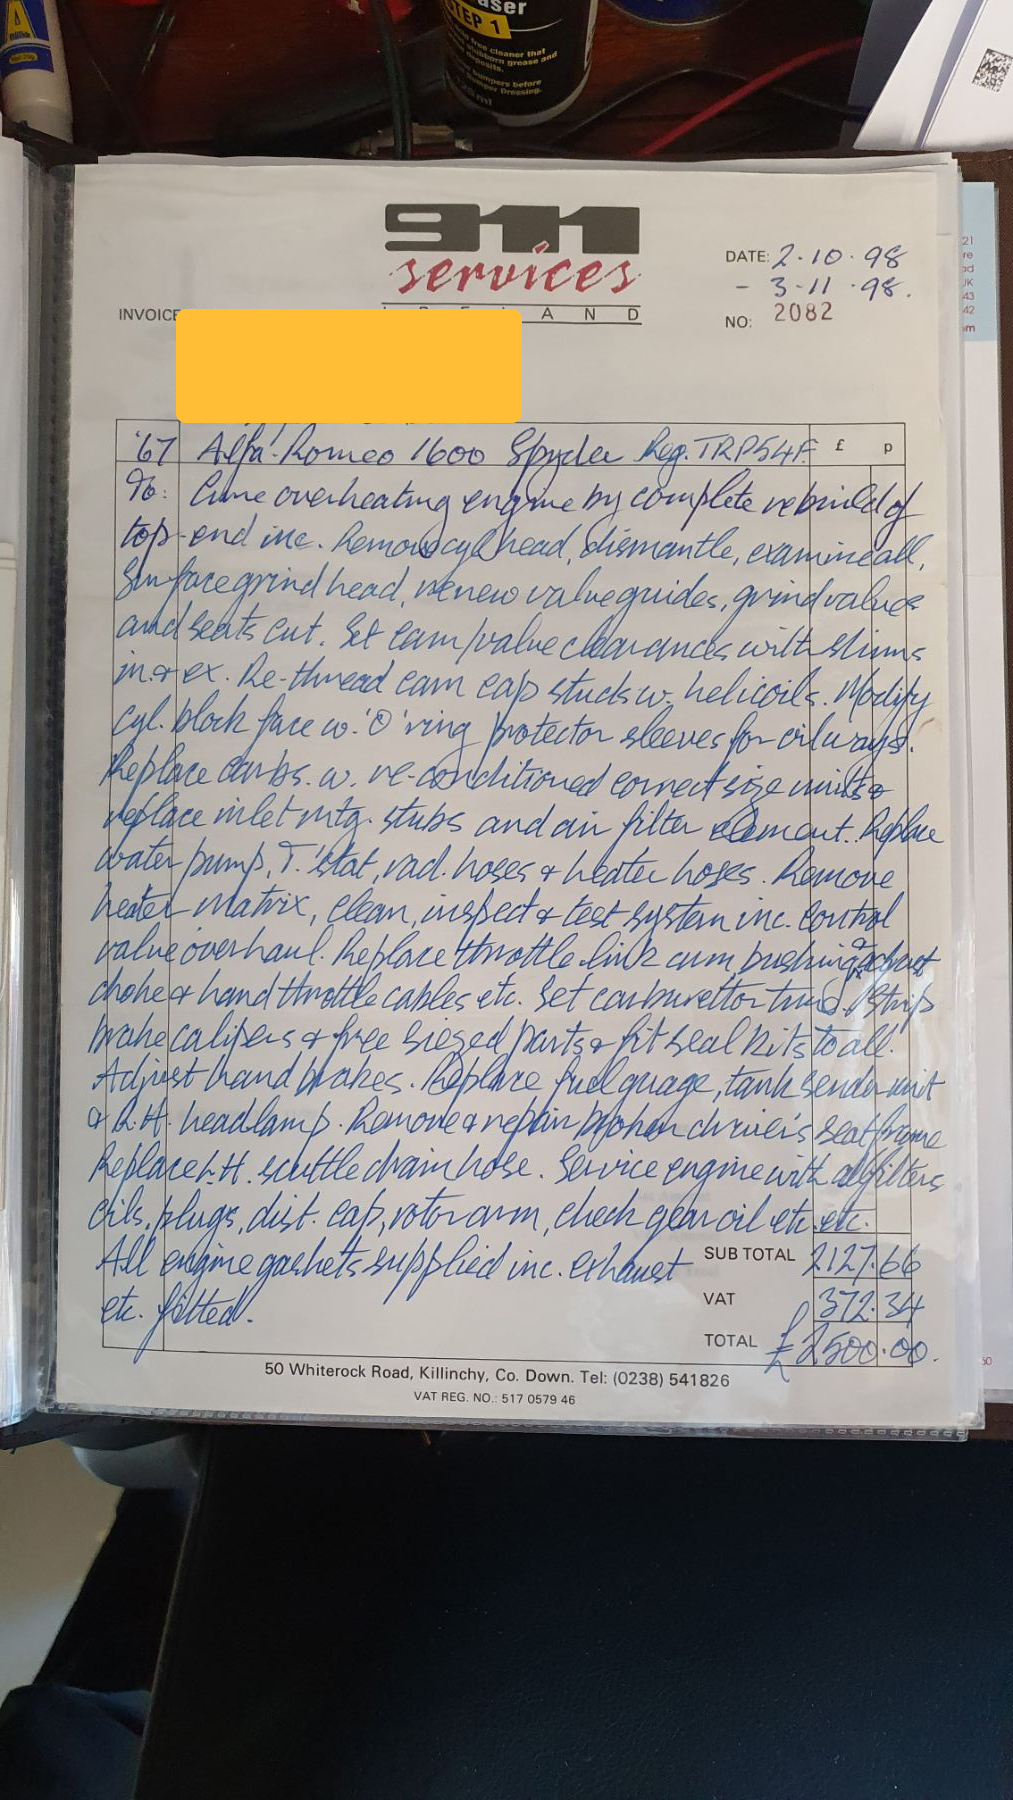 aser
STEP 1
free cleaner that
stubborn grease and
deposits.
bumpers before
Bumper Dressing.
ml
911
services
I R E L A N D
DATE: 2·10·98
- 3·11·98.
INVOICE
NO: 2082
'67 Alfa-Romeo 1600 Spyder Reg. TRP54F. £ p
To: Cure overheating engine by complete rebuild of
top-end inc. Remove cyl head, dismantle, examine all,
Surface grind head, renew valve guides, grind valves
and seats cut. Set cam/valve clearances with shims
in. & ex. Re-thread cam cap studs w. helicoils. Modify
cyl. block face w. 'O' ring protector sleeves for oilways.
Replace carbs. w. re-conditioned correct size units &
replace inlet mtg. stubs and air filter element. Replace
water pump, T.'stat, rad. hoses & heater hoses. Remove
heater matrix, clean, inspect & test system inc. control
valve overhaul. Replace throttle link arm bushing & adjust
choke & hand throttle cables etc. Set carburettor tune. Strip
brake calipers & free siezed parts & fit seal kits to all.
Adjust hand brakes. Replace fuel guage, tank sender unit
& R.H. headlamp. Remove & repair broken driver's seat frame
Replace L.H. scuttle drain hose. Service engine with all filters
oils, plugs, dist. cap, rotor arm, check gear oil etc. etc.
All engine gaskets supplied inc. exhaust
etc. fitted.
SUB TOTAL 2127.66
VAT 372.34
TOTAL £2500.00.
50 Whiterock Road, Killinchy, Co. Down. Tel: (0238) 541826
VAT REG. NO.: 517 0579 46